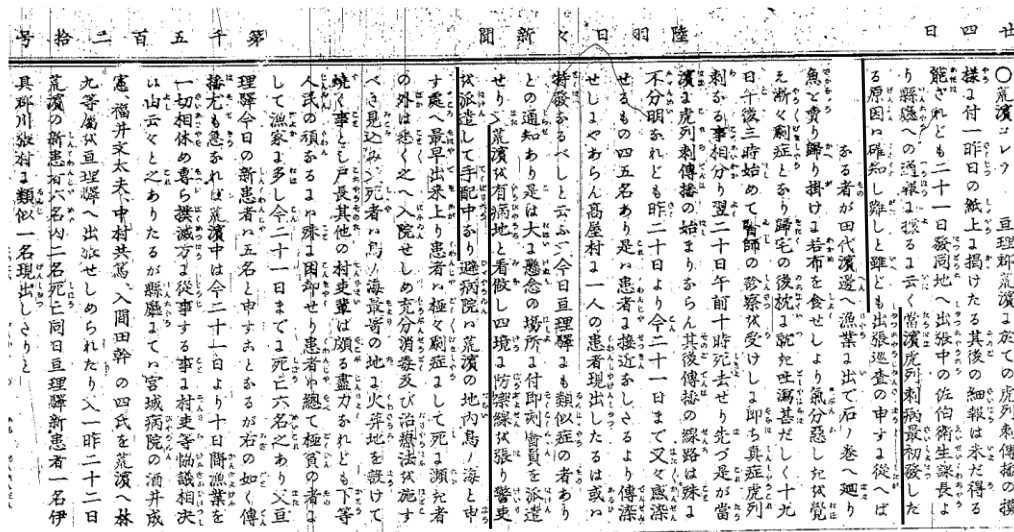 廿四日
陸羽日々新聞
第千五百二拾号
○荒濱コレラ 亘理郡荒濱に於ての虎列刺傳播の摸
様は付一昨日の紙上に掲けたる其後の細報は未だ得る
能ざれども二十一日發同地へ出張中の佐伯衛生課長よ
り縣廳への通報に據るに云く當濱虎列刺病最初發した
る原因ハ確知し難しと雖ども出張巡査の申すに從へば
なる者が田代濱邊へ漁業に出て石ノ巻へ廻り
魚を賣り歸り掛けに若布を食せしより氣分惡しきを覺
え漸々劇症となり歸宅の後枕に就き吐瀉甚だしく十九
日午後三時始めて醫師の診察を受けしに即ち真症虎列
刺なる事相分り翌二十日午前十時死去せり先づ是が當
濱に虎列刺傳播の始まりならん其後傳播の線路は殊に
不分明なれども昨二十日より今二十一日まで又々感染
せるもの四五名あり是ハ患者に接近なしさるより傳染
せしよやあらん高屋村に一人の患者現出したるは或ハ
特發なるべしと云ふ今日亘理驛にも類似症の者あり
との通知あり是は大に懸念の場所に付即刻會員を派遣
せり荒濱を有病地と看做し四境に防禦線を張り警吏
を派遣して手配中なり避病院ハ荒濱の地内鳥ノ海と申
す處へ最早出来上り患者ハ極々劇症にして死に瀕た者
の外は悉く之へ入院せしめ充分消毒及び治療法を施す
べき見込み死者ハ鳥ノ海最寄の地に火葬地を設けて
燒く事とし戸長其他の村吏輩ば頗る盡力なれども下等
人民の頑なるにハ殊に困却せり患者ハ總て極貧の者に
して漁家に多し今二十一日までに死亡六名之あり又亘
理驛今日の新患者ハ五名と申すことなるが右の如く傳
播尤も急なれば荒濱中は今二十一日より十日間漁業を
一切相休め專ら撲滅方に從事する事に村吏等協議相决
い由云々と之ありたるが縣廳にてハ宮城病院の酒井成
憲、福井文太夫、中村共篤、入間田幹 の四氏を荒濱へ林
九等屬を亘理驛へ出張せしめられたり又一昨二十二日
荒濱の新患者六名内二名死亡同日亘理驛新患者一名伊
具郡川張村に類似一名現出しさりと